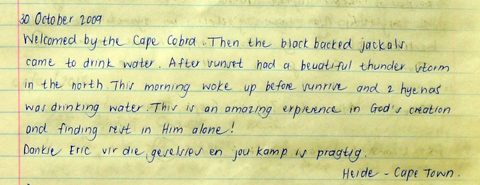 30 October 2009
Welcomed by the Cape Cobra. Then the black backed jackals
came to drink water. After sunset had a beautiful thunder storm
in the north This morning woke up before sunrise and 2 hyenas
was drinking water. This is an amazing erpirence in God's creation
and finding rest in Him alone!
Dankie Eric vir die geselsies en jou kamp is pragtig.
Heide - Cape Town.